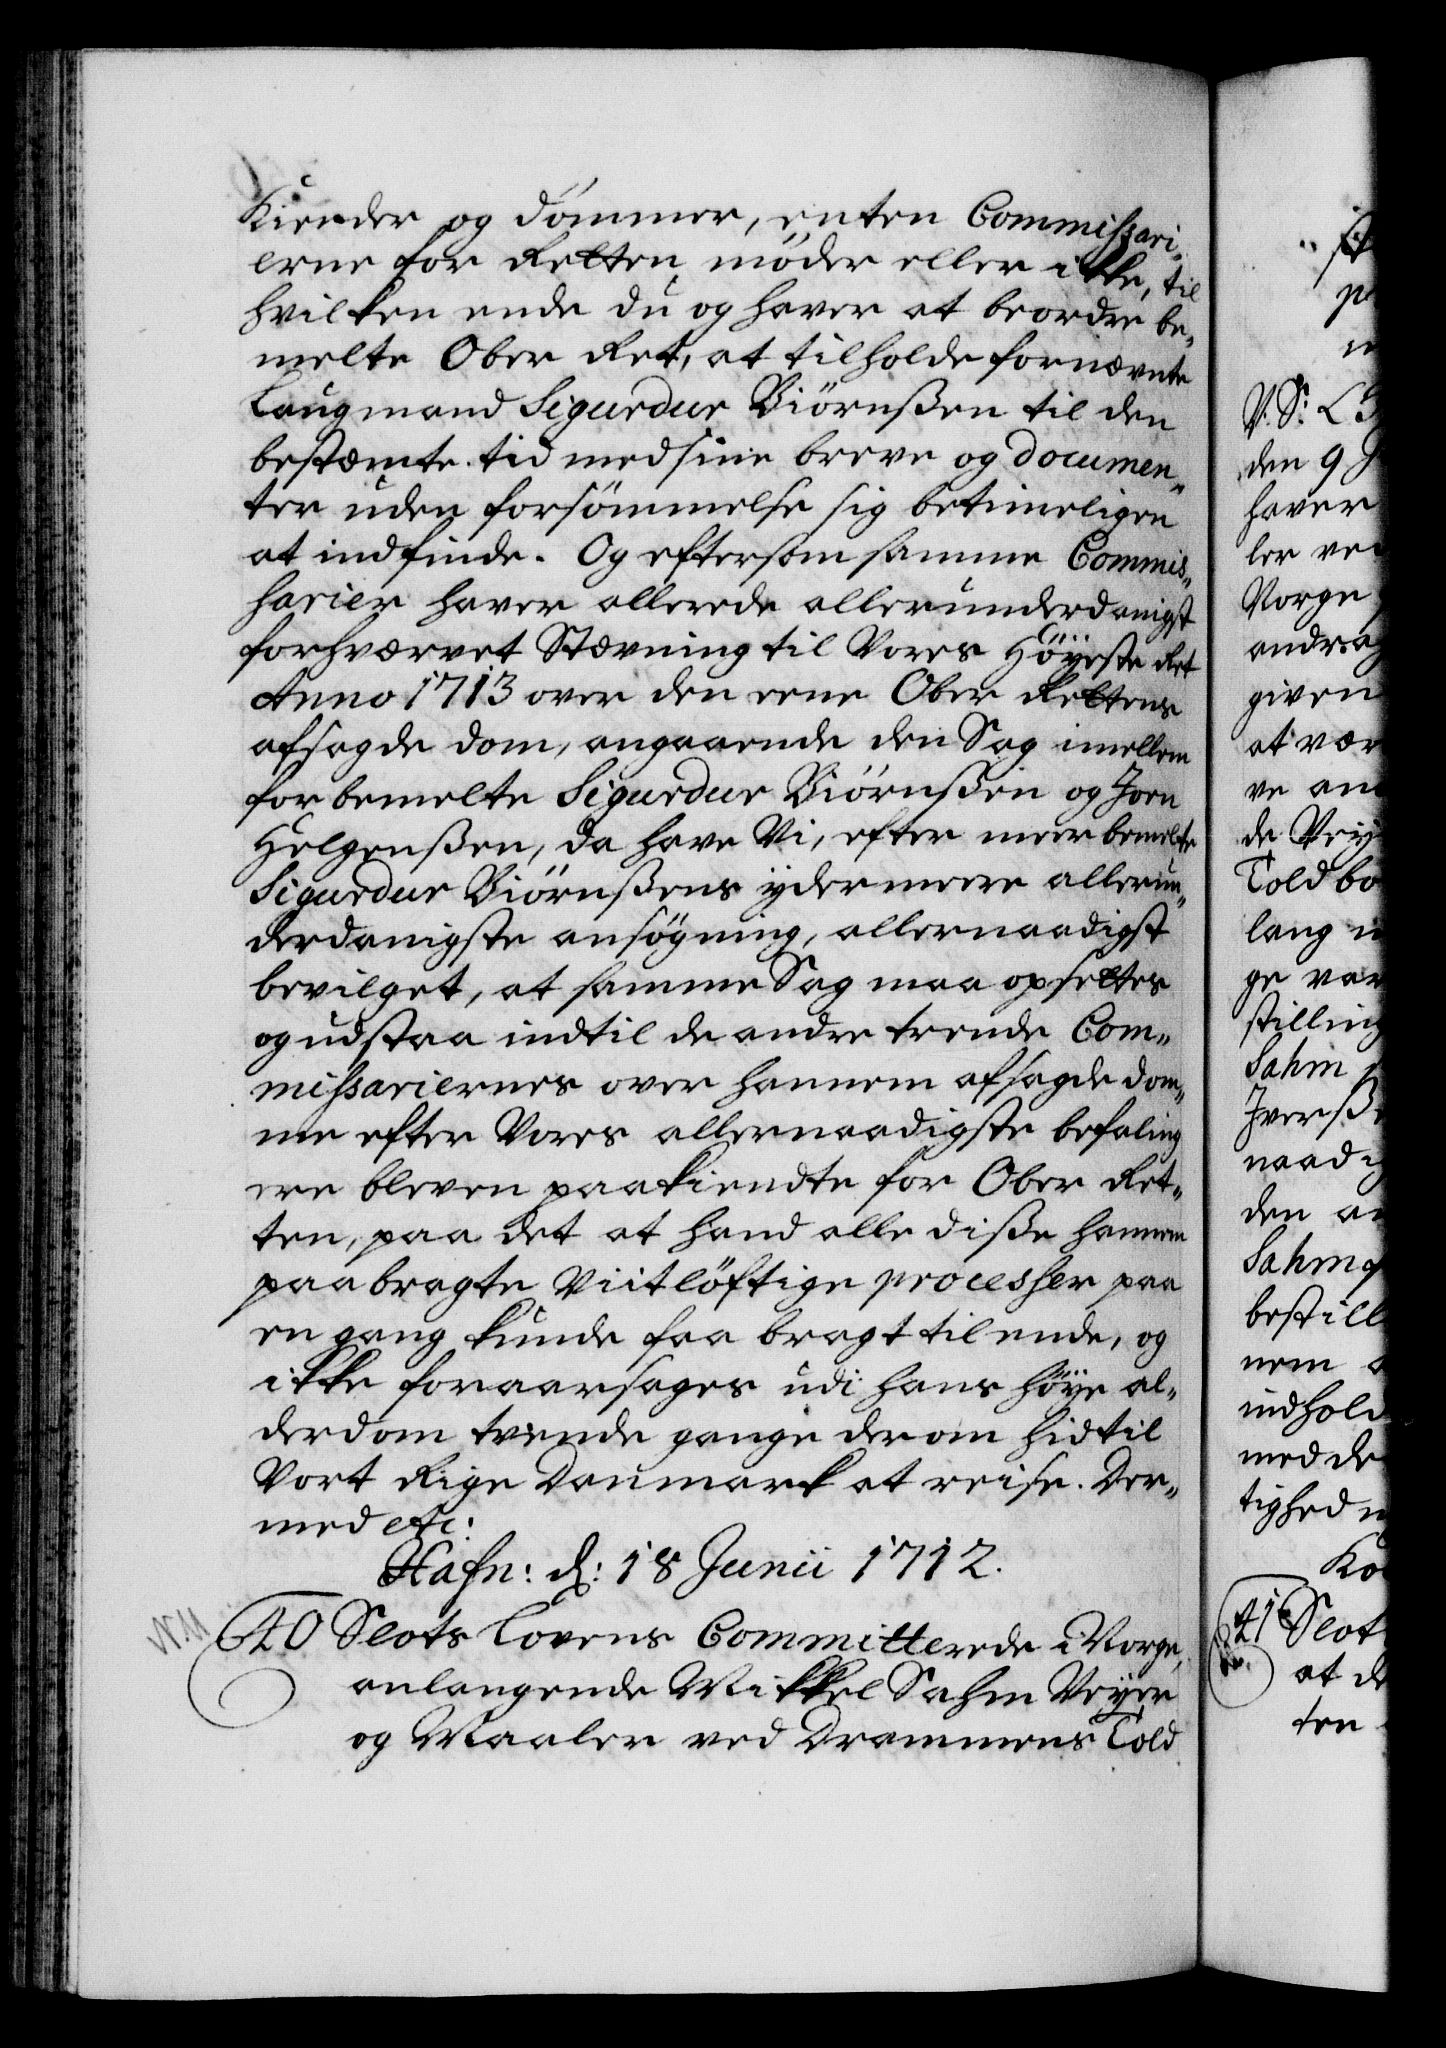 Kiender og dömmer, enten Commissari„
erne for Retten möder eller ikke, til
hvilken ende du og haver at beordre be„
melte Ober Ret, at tilholde fornævnte
Laugmand Sigurdur Biörnßen til den
bestæmte tid med sine breve og documen„
ter uden forsömmelse sig betimeligen
at indfinde. Og eftersom samme Commis„
sarier haver allerede allerunderdanigst
forhværvet Stævning til Vores Höyeste Ret
Anno 1713 over den eene Ober Rettens
afsagde dom, angaaende den Sag imellem
forbemelte Sigurdur Biörnßen og Joen
Helgenßen, da have Vi, efter meerbemelte
Sigurdur Biörnßens ydermeere allerun„
derdanigste ansögning, allernaadigst
bevilget, at samme Sag maa opsettes
og udstaa indtil de andre trende Com„
missariernes over hannem afsagde dom„
me efter Vores allernaadigste befaling
ere bleven paakiendte for Ober Ret„
ten, paa det at hand alle disse hannem
paabragte Viitlöftige processer paa
en gang kunde faa bragt til ende, og
ikke foraarsages udi hans höye al„
derdom tvende gange derom hid til
Vort Rige Danmark at reise. Der„
med etc:
Hafn: d: 18 Junii 1712.
40 Slots Lovens Committerede i Norge,
anlangende Mikkel Sahm Veyer
og Maaler ved Drammens Told
V. S: L
den 9
haver
ler ve
Norge
andrag
given
at vær
ve an
de Vey
Told bo
lang
ge var
stilling
Sahm
Iverße
naadig
den an
Sahm
bestill
nem
indhold
med de
tighed
41 Slot
at de
ten